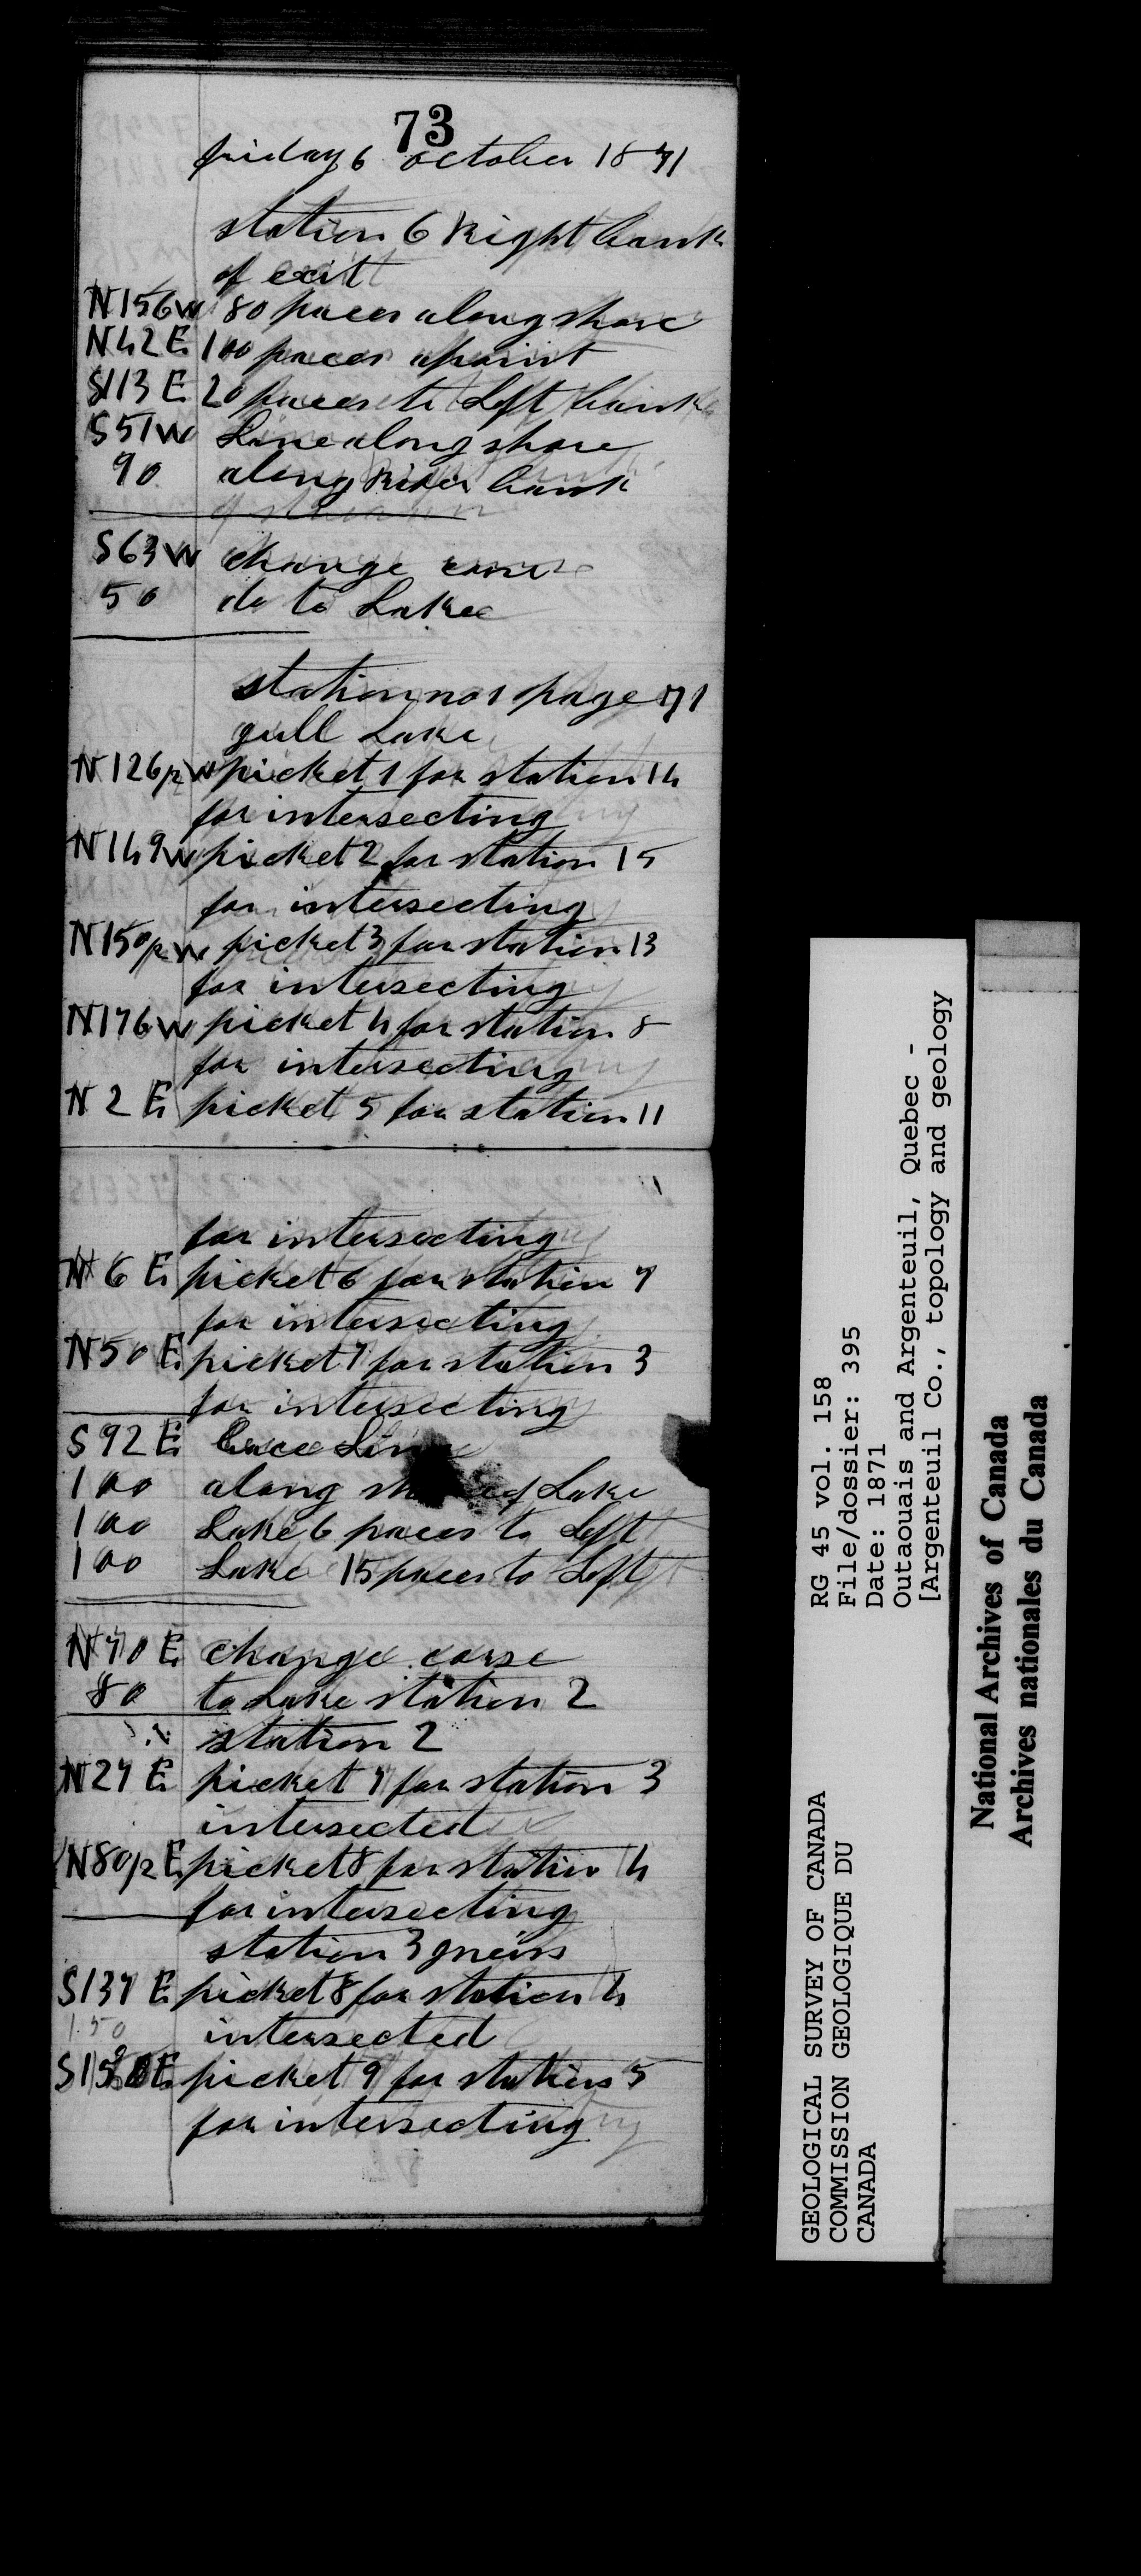 73
friday 6 october 1871
station 6 Right bank
of exit
N156W 80 paces along shore
N42E 100 paces apoint
S113E 20 paces to Left bank
S51W Line along shore
90 along River bank
S63W change corse
50 do to Lake
station no 1 page 71
gull Lake
N126½W picket 1 for station 14
for intersecting
N149W picket 2 for station 15
for intersecting
N150½W picket 3 for station 13
for intersecting
N176W picket 4 for station 8
for intersecting
N 2 E picket 5 for station 11
for intersecting
N 6 E picket 6 for station 7
for intersecting
N50 E picket 7 for station 3
for intersecting
S 92 E bace Line
100 along of Lake
100 Lake 6 paces to Left
100 Lake 15 paces to Left
N70 E change corse
80 to Lake station 2
station 2
N27 E picket 7 for station 3
intersected
N80½E picket 8 for station 4
for intersecting
station 3 gneiss
S137 E picket 8 for station 4
150 intersected
picket 9 for station 5
for intersecting
RG 45 vol. 158
File/dossier: 395
Date: 1871
Outaouais and Argenteuil, Quebec -
[Argenteuil Co., topology and geology
GEOLOGICAL SURVEY OF CANADA
COMMISSION GEOLOGIQUE DU
CANADA
National Archives of Canada
Archives nationales du Canada